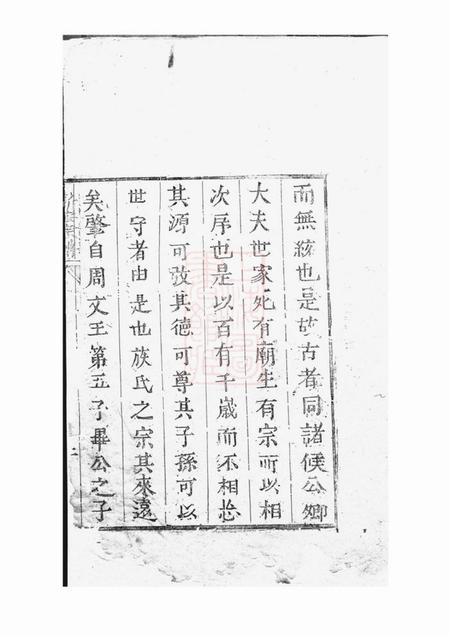 而無紊也是故古者同諸侯公卿
大夫世家死有廟生有宗所以相
次序也是以百有千歲而不相忘
其源可攷其德可尊其子孫可以
世守者由是也族氏之宗其來遠
矣肇自周文王第五子畢公之子